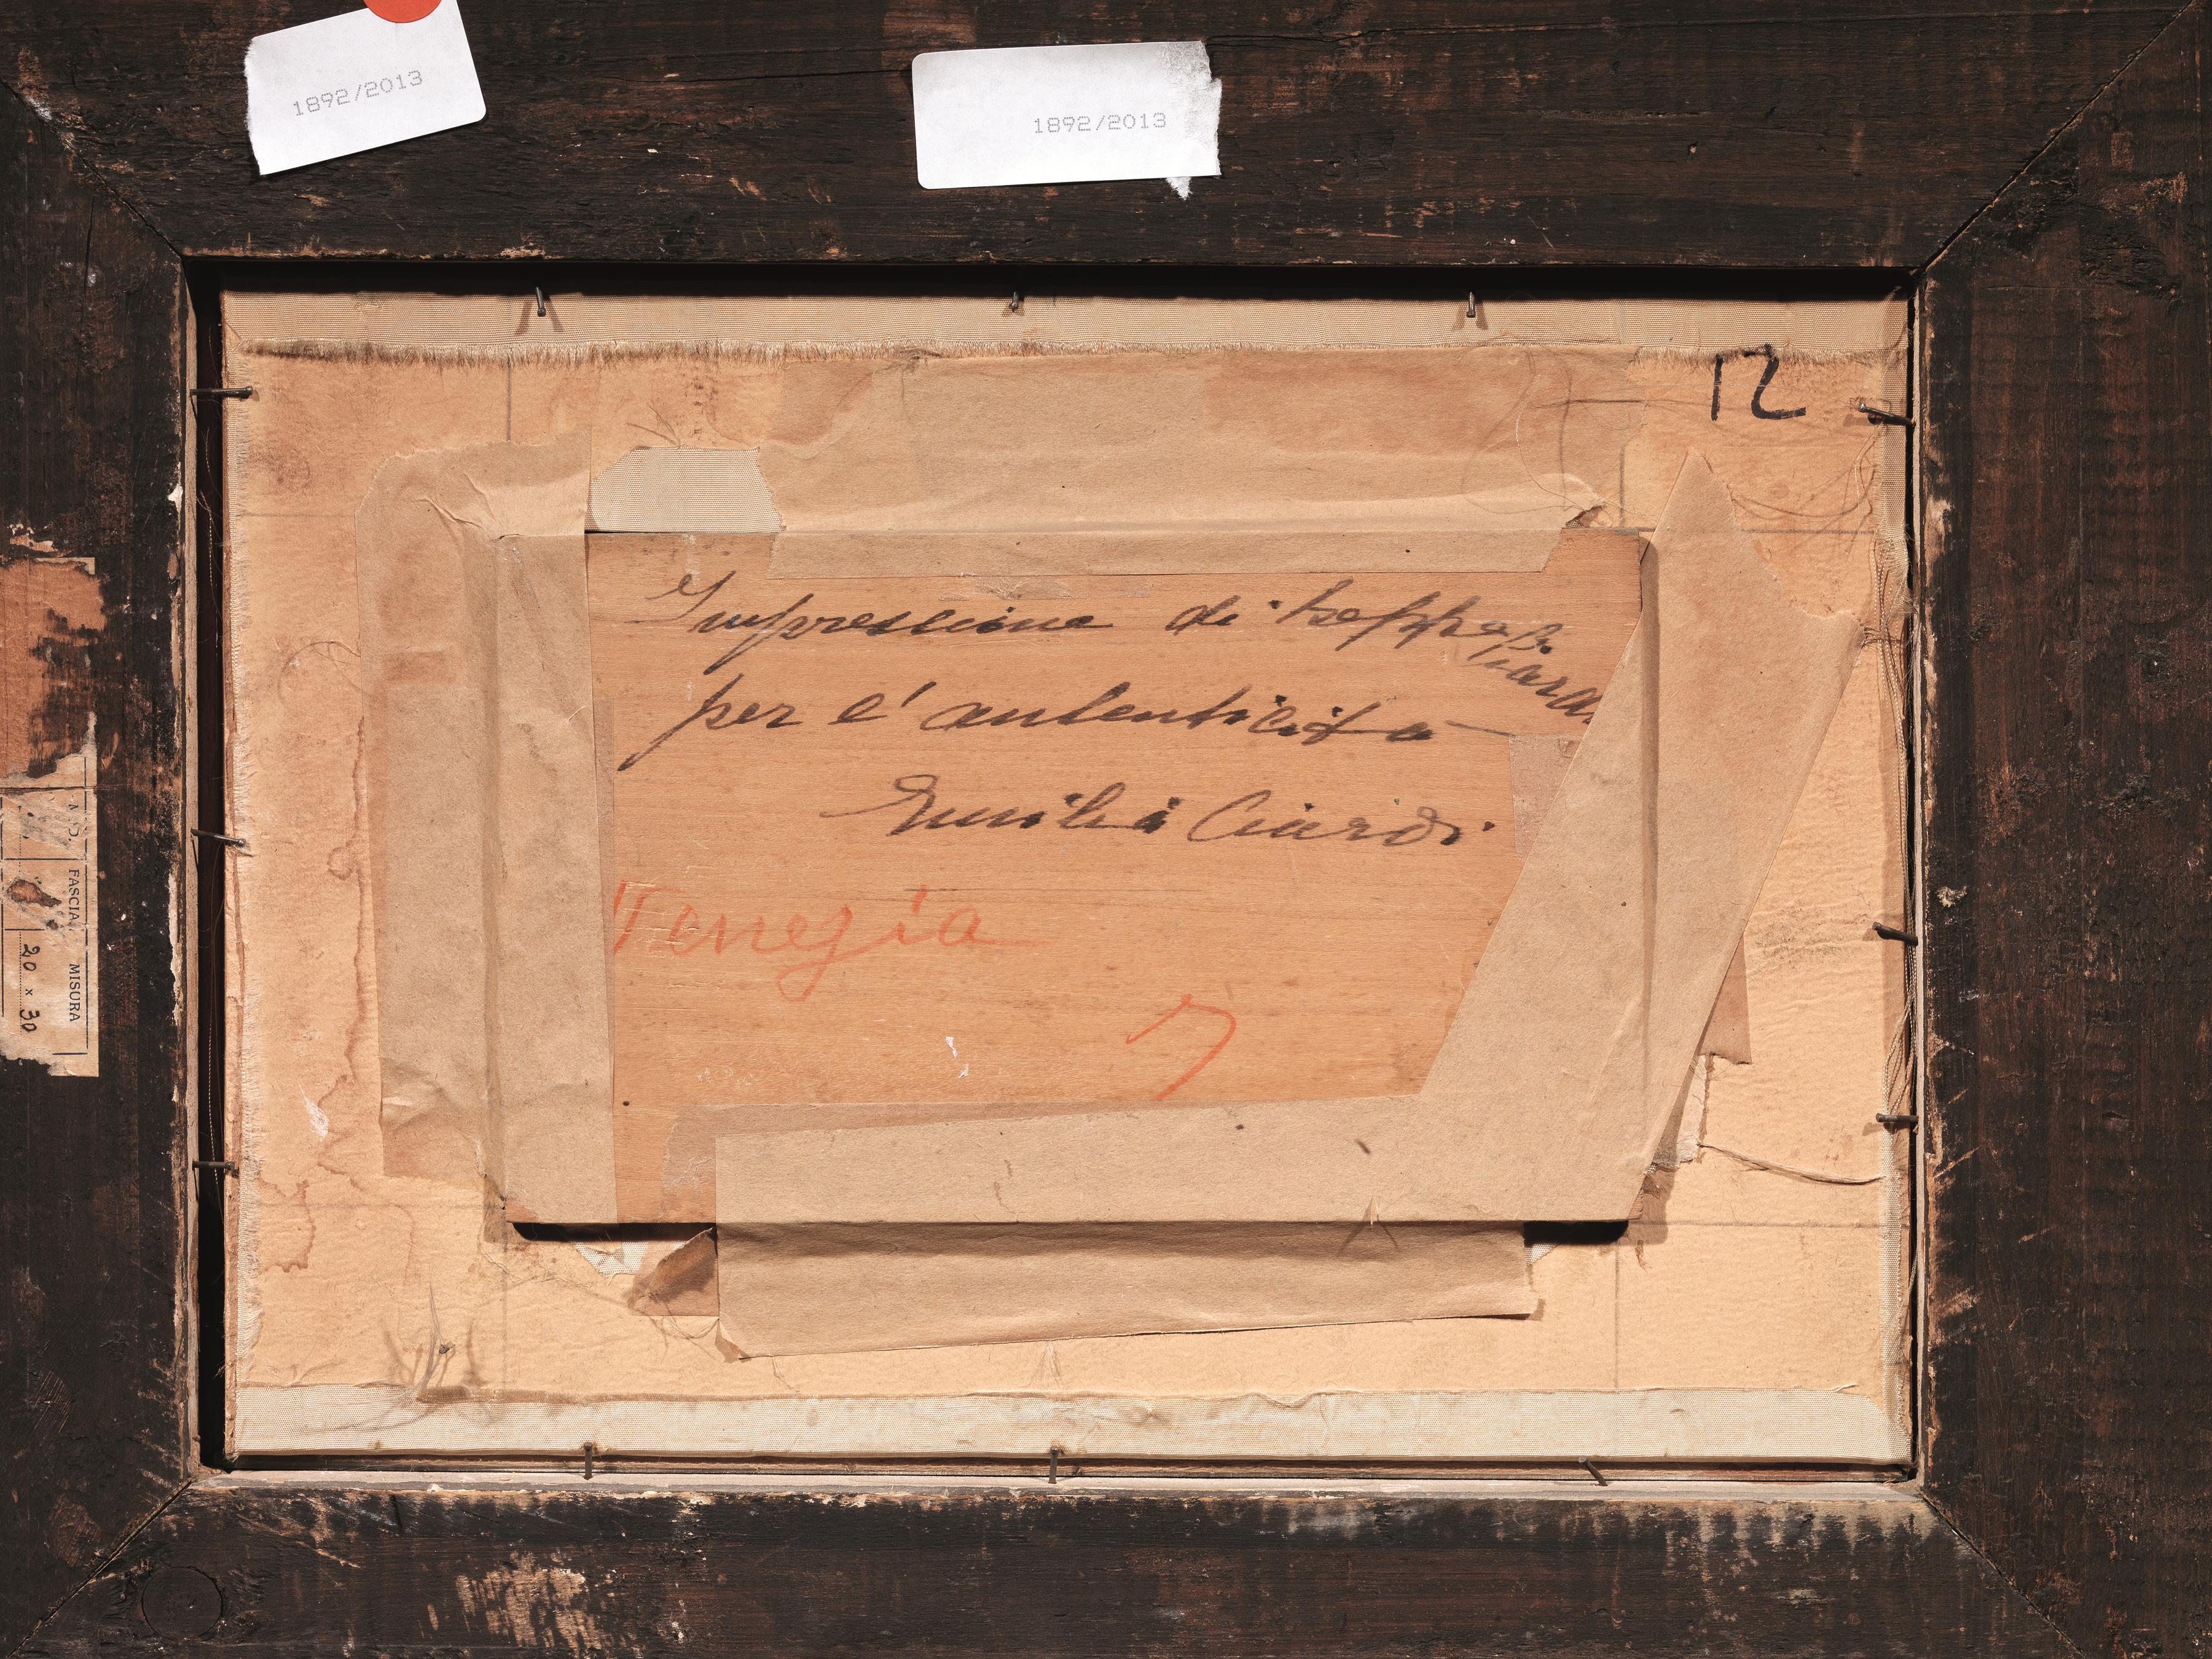 1892/2013
1892/2013
12
Impressione di Beppe Ciardi
per l'autenticità
Emilia Ciardi
Venezia
FASCIA
MISURA
20 x 30